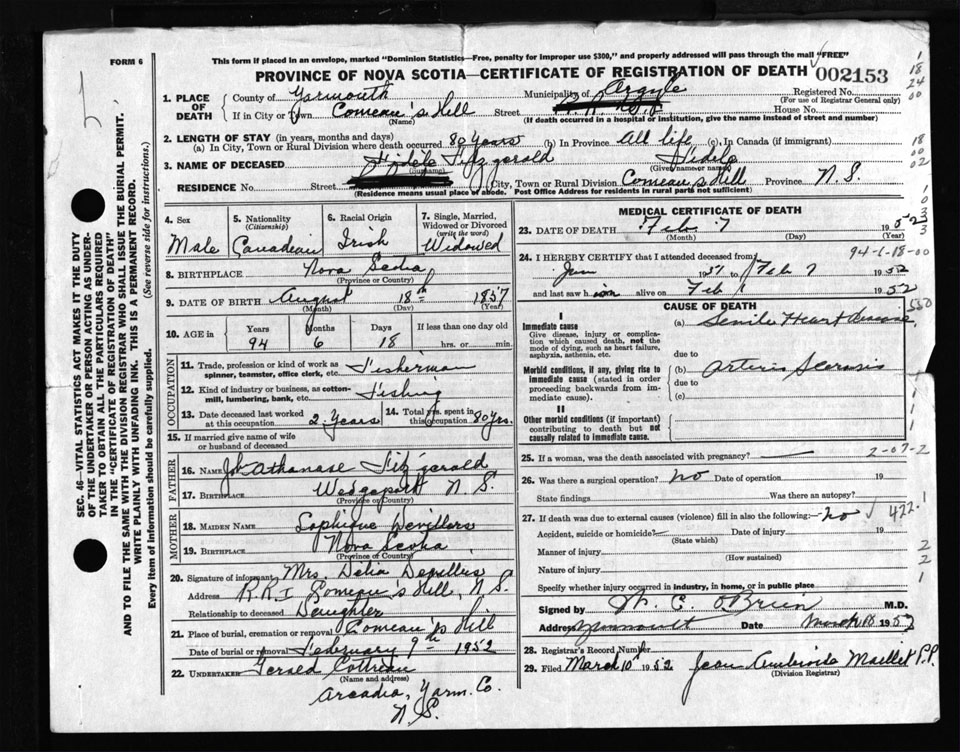 FORM 6
This form if placed in an envelope, marked "Dominion Statistics—Free, penalty for improper use $300," and properly addressed will pass through the mail "FREE"
PROVINCE OF NOVA SCOTIA—CERTIFICATE OF REGISTRATION OF DEATH 002153
1. PLACE OF DEATH County of Yarmouth Municipality of Argyle Registered No.
(For use of Registrar General only)
If in City or Town Comeau's Hill Street House No.
(Name) (If death occurred in a hospital or institution, give the name instead of street and number)
2. LENGTH OF STAY (in years, months and days)
(a) In City, Town or Rural Division where death occurred 80 years (b) In Province All life (c) In Canada (if immigrant)
3. NAME OF DECEASED Fitzgerald Fidele
(surname) (Given name or names)
RESIDENCE No. Street City, Town or Rural Division Comeau's Hill Province N.S.
(Residence means usual place of abode. Post Office Address for residents in rural parts not sufficient)
4. Sex Male
5. Nationality (Citizenship) Canadian
6. Racial Origin Irish
7. Single, Married, Widowed or Divorced (write the word) Widowed
8. BIRTHPLACE Nova Scotia
(Province or Country)
9. DATE OF BIRTH August 18th 1857
(Month) (Day) (Year)
10. AGE in Years Months Days If less than one day old
94 6 18 hrs. or min.
OCCUPATION
11. Trade, profession or kind of work as spinner, teamster, office clerk, etc. Fisherman
12. Kind of industry or business, as cotton-mill, lumbering, bank, etc. Fishing
13. Date deceased last worked at this occupation 2 years
14. Total yrs. spent in this occupation 80 yrs.
15. If married give name of wife or husband of deceased
FATHER
16. NAME Athanase Fitzgerald
17. BIRTHPLACE Wedgeport N.S.
(Province or Country)
MOTHER
18. MAIDEN NAME Sophique Devillers
19. BIRTHPLACE Nova Scotia
(Province or Country)
20. Signature of informant Mrs. Delia
Address R.R.1 Comeau's Hill, N.S.
Relationship to deceased Daughter
21. Place of burial, cremation or removal Comeau's Hill
Date of burial or removal February 9th 1952
22. UNDERTAKER Gerald Cottreau
(Name and address)
Arcadia, Yarm. Co.
N.S.
MEDICAL CERTIFICATE OF DEATH
23. DATE OF DEATH Feb. 7 1952
(Month) (Day) (Year)
94-6-18-00
24. I HEREBY CERTIFY that I attended deceased from
Jan 1951 to Feb 7 1952
and last saw him alive on Feb 1 1952
CAUSE OF DEATH
I
Immediate cause
Give disease, injury or complication which caused death, not the mode of dying, such as heart failure, asphyxia, asthenia, etc.
(a) Senile Heart disease
due to
Morbid conditions, if any, giving rise to immediate cause (stated in order proceeding backwards from immediate cause).
(b) Arterio Sclerosis
due to
(c)
II
Other morbid conditions (if important) contributing to death but not causally related to immediate cause.
25. If a woman, was the death associated with pregnancy?
26. Was there a surgical operation? No Date of operation 19
State findings Was there an autopsy?
27. If death was due to external causes (violence) fill in also the following:— no 422.1
Accident, suicide or homicide? Date of injury 19
(State which)
Manner of injury
(How sustained)
Nature of injury
Specify whether injury occurred in industry, in home, or in public place
Signed by W. C. O'Brien M.D.
Address Yarmouth Date March 10 1952
28. Registrar's Record Number
29. Filed March 10th 1952 Jean Ambroise Maillet P.P.
(Division Registrar)
SEC. 46—VITAL STATISTICS ACT MAKES IT THE DUTY
OF THE UNDERTAKER OR PERSON ACTING AS UNDER-
TAKER TO OBTAIN ALL THE PARTICULARS REQUIRED
IN THE "CERTIFICATE OF REGISTRATION OF DEATH"
AND TO FILE THE SAME WITH THE DIVISION REGISTRAR WHO SHALL ISSUE THE BURIAL PERMIT.
WRITE PLAINLY WITH UNFADING INK. THIS IS A PERMANENT RECORD.
Every item of information should be carefully supplied. (See reverse side for instructions.)